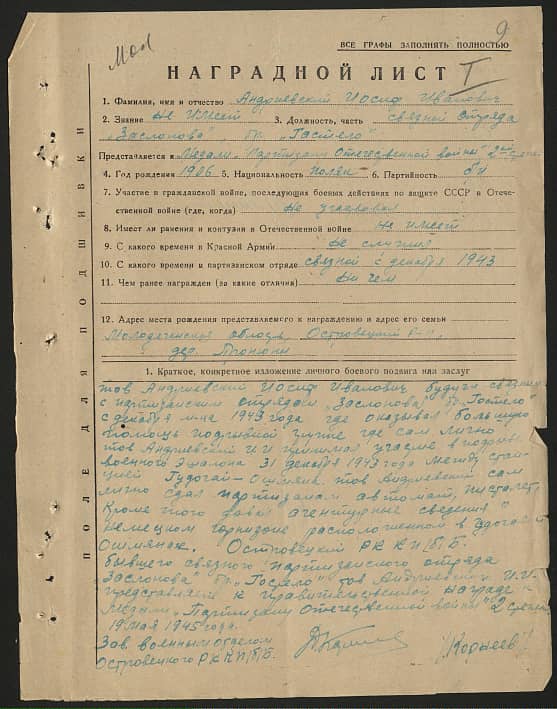 2
ВСЕ ГРАФЫ ЗАПОЛНЯТЬ ПОЛНОСТЬЮ
НАГРАДНОЙ ЛИСТ
1. Фамилия, имя и отчество Андриевский Иосиф Иванович
2. Звание не имеет 3. Должность, часть связной отряда
„Заслонова" бр. „Гастелло"
Представляется к Медали „Партизану Отечественной войны" 2ой степ.
4. Год рождения 1906 5. Национальность поляк 6. Партийность б/п
7. Участие в гражданской войне, последующих боевых действиях по защите СССР в Отече-
ственной войне (где, когда) Не участвовал
8. Имеет ли ранения и контузии в Отечественной войне не имеет
9. С какого времени в Красной Армии не служил
10. С какого времени в партизанском отряде связной с декабря 1943
11. Чем ранее награжден (за какие отличия) Ни чем
12. Адрес места рождения представляемого к награждению и адрес его семьи
Молодеченская область, Островецкий р-н,
дер.
1. Краткое, конкретное изложение личного боевого подвига или заслуг
тов Андриевский Иосиф Иванович будучи связным
с партизанским отрядом „Заслонова" бр. „Гастелло"
с декабря м-ца 1943 года где оказывал большую
помощь подрывной группе где сам лично
тов Андриевский И.И принимал участие в подрыве
военного эшалона 31 декабря 1943 года между стан-
цией Гудогай-Ошмяна. тов Андриевский сам
лично сдал партизанам автомат, пистолет,
Кроме того давал агентурные сведения о
немецком гарнизоне расположенном в
Ошмянах. Островецкий РК КП/б/Б.
бывшего связного партизанского отряда
Заслонова" бр. „Гастелло" тов Андриевский И.И.
представляет к правительственной награде к
Медали „Партизану Отечественной войны" 2 степени
19 мая 1945 года.
Зав. военным отделом
Островецкого РК КП/б/Б. /Корнеев/
ПОЛЕ ДЛЯ ПОДШИВКИ